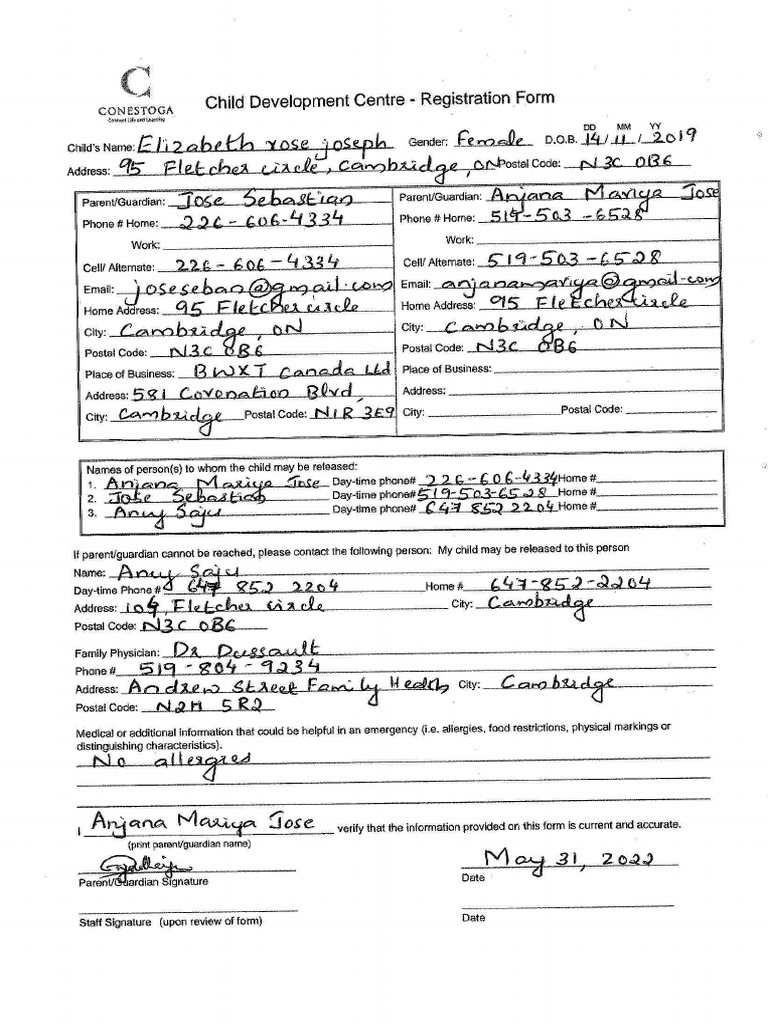 CONESTOGA
Connect Life and Learning
Child Development Centre - Registration Form
DD MM YY
Child's Name: Elizabeth rose joseph Gender: Female D.O.B. 14/11/2019
Address: 95 Fletcher circle, Cambridge, ON Postal Code: N3C 0B6
Parent/Guardian: Jose Sebastian
Phone # Home: 226-606-4334
Work:
Cell/ Alternate: 226-606-4334
Email: joseseban@gmail.com
Home Address: 95 Fletcher circle
City: Cambridge, ON
Postal Code: N3C 0B6
Place of Business: BWXT Canada Ltd
Address: 581 Coronation Blvd,
City: Cambridge Postal Code: N1R 3E9
Parent/Guardian: Anjana Mariya Jose
Phone # Home: 519-503-6528
Work:
Cell/ Alternate: 519-503-6528
Email: anjanamariya@gmail.com
Home Address: 95 Fletcher circle
City: Cambridge, ON
Postal Code: N3C 0B6
Place of Business:
Address:
City: Postal Code:
Names of person(s) to whom the child may be released:
1. Anjana Mariya Jose Day-time phone# 226-606-4334 Home #
2. Jose Sebastian Day-time phone# 519-503-6528 Home #
3. Anuj Saju Day-time phone# 647 852 2204 Home #
If parent/guardian cannot be reached, please contact the following person: My child may be released to this person
Name: Anuj Saju
Day-time Phone # 647 852 2204 Home # 647-852-2204
Address: 109, Fletcher circle City: Cambridge
Postal Code: N3C 0B6
Family Physician: Dr Dussault
Phone # 519-804-9234
Address: Andrew Street Family Health City: Cambridge
Postal Code: N2H 5R2
Medical or additional information that could be helpful in an emergency (i.e. allergies, food restrictions, physical markings or
distinguishing characteristics).
No allergies
I, Anjana Mariya Jose verify that the information provided on this form is current and accurate.
(print parent/guardian name)
May 31, 2022
Parent/Guardian Signature Date
Staff Signature (upon review of form) Date